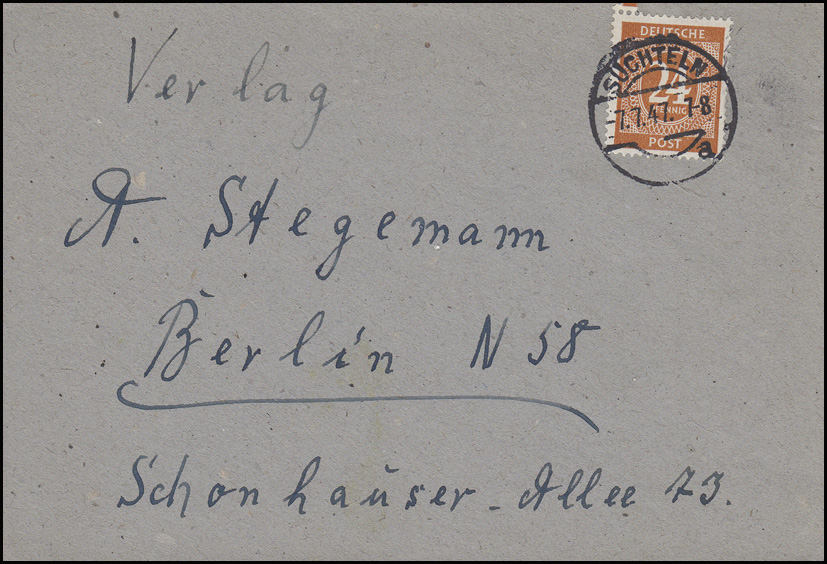 DEUTSCHE
24
PFENNIG
POST
SÜCHTELN
7.7.47. 7-8
a
Verlag
A. Stegemann
Berlin N 58
Schonhauser-Allee 73.